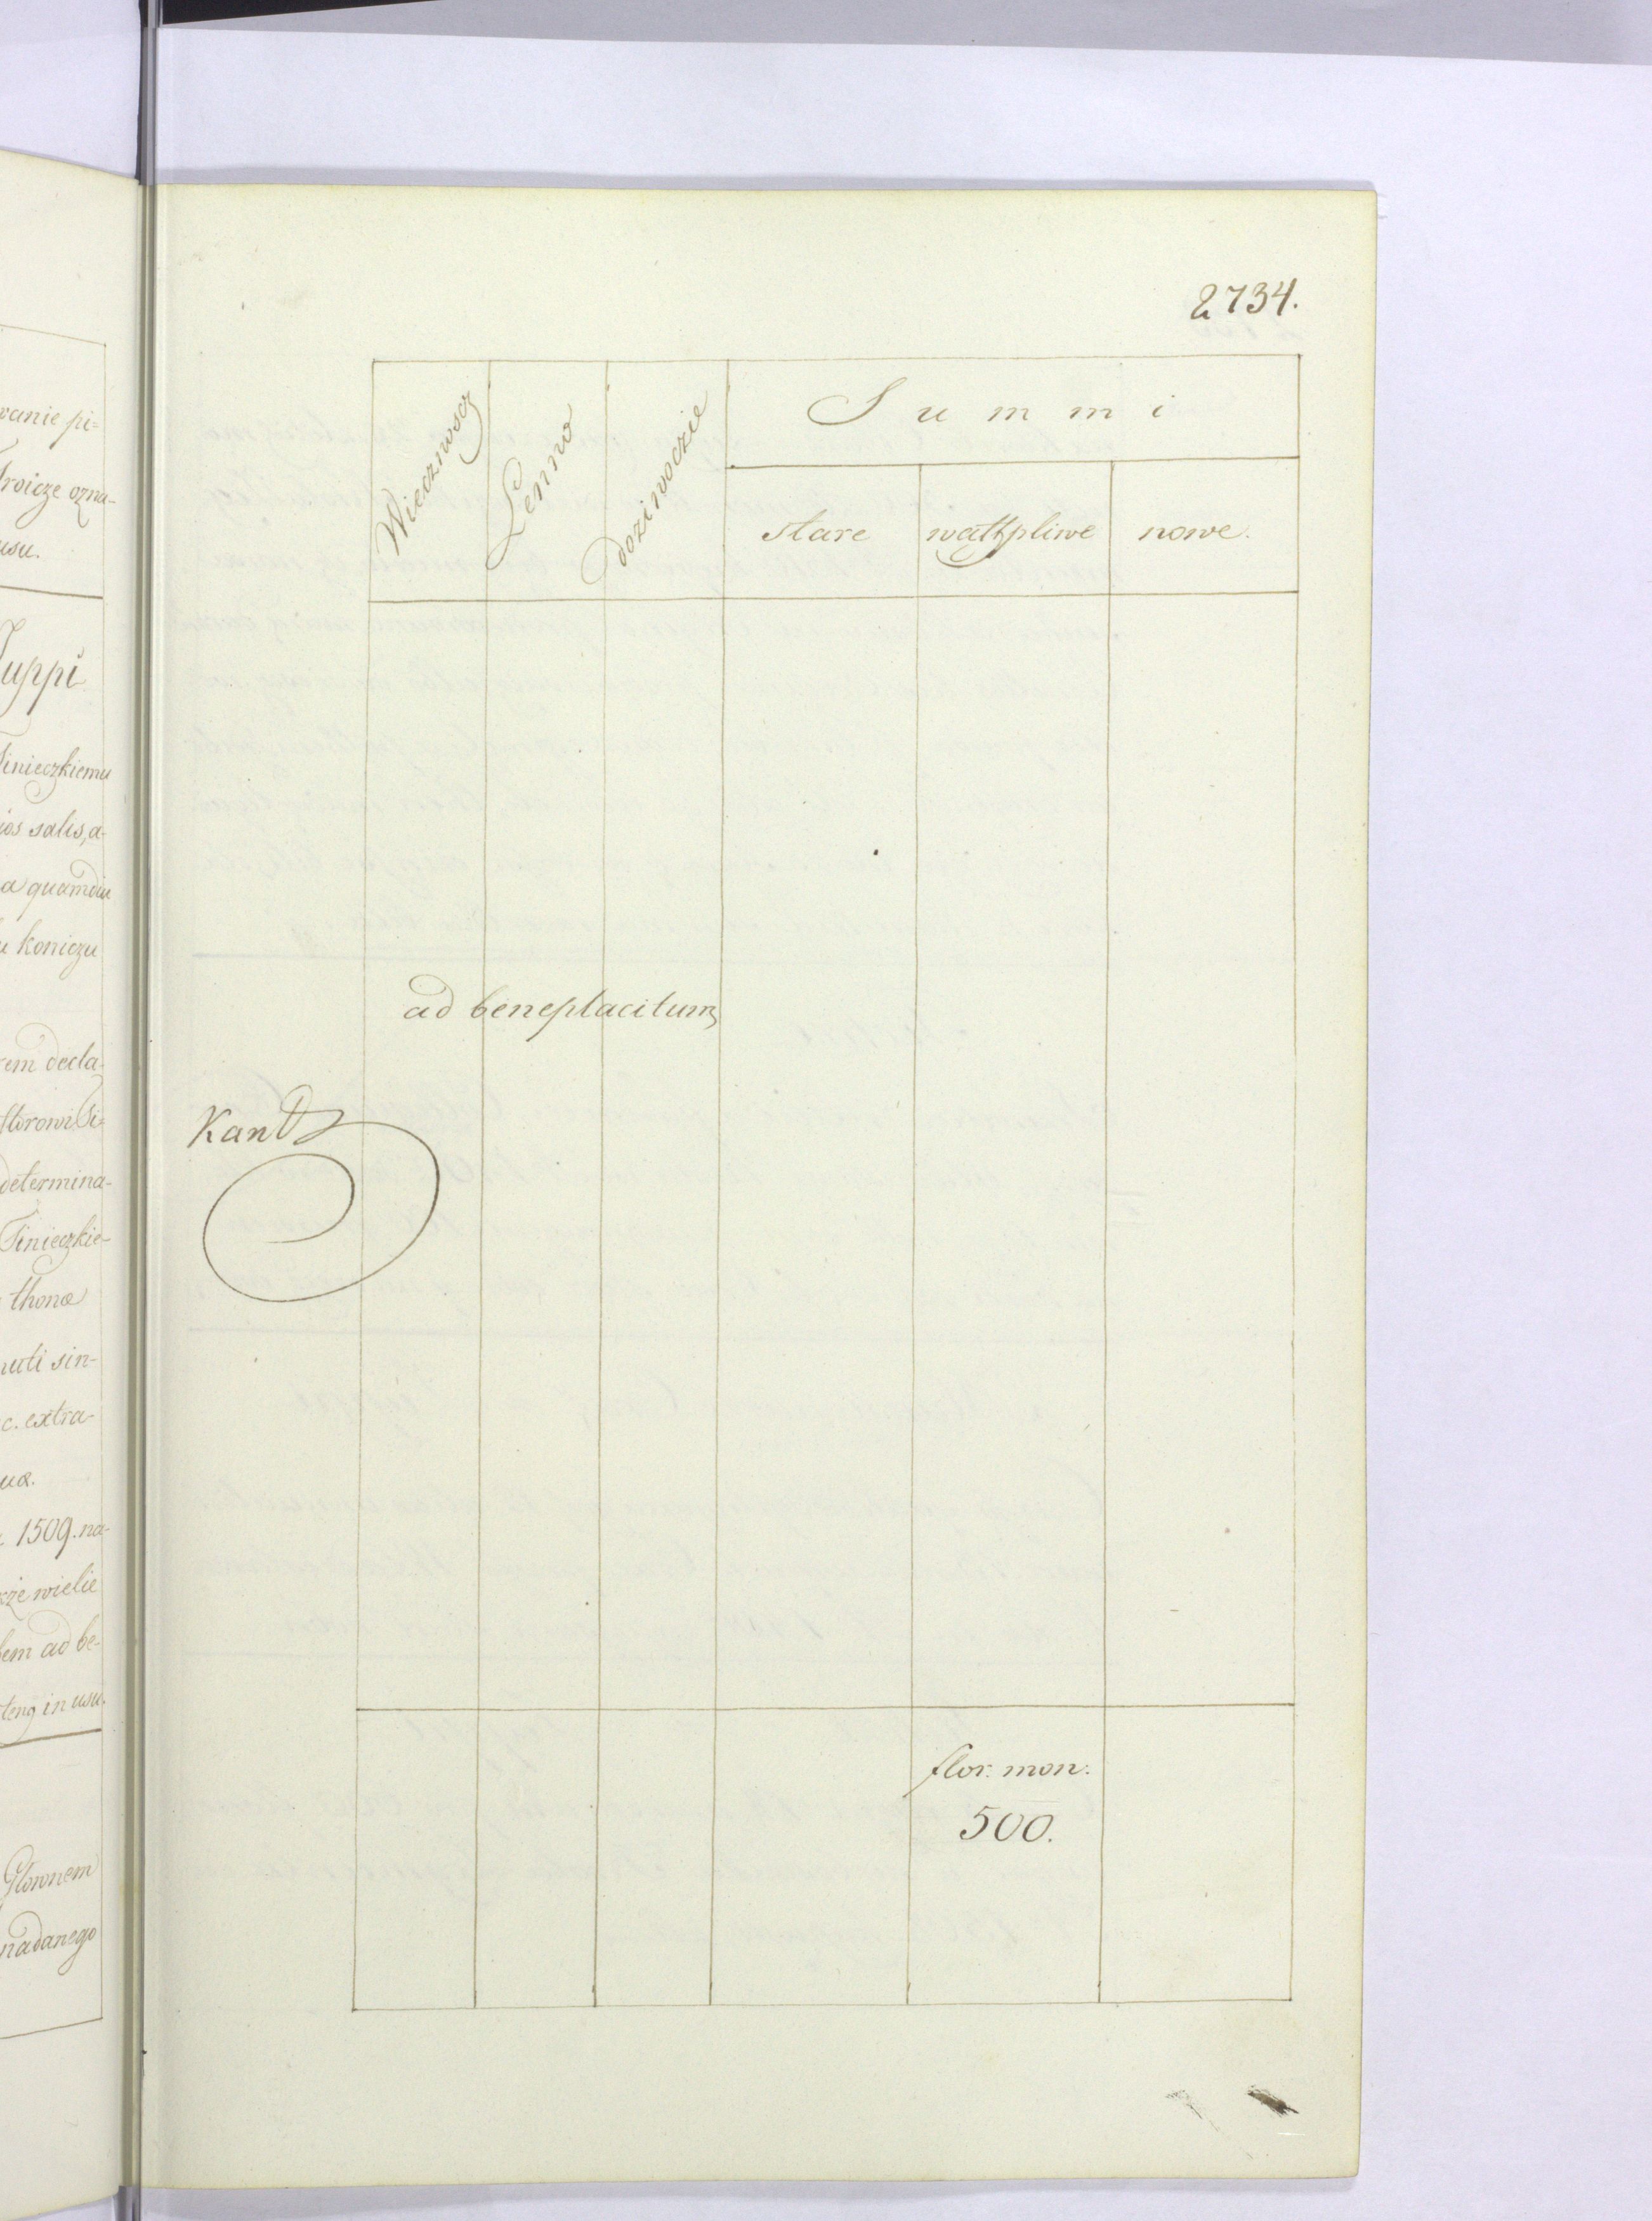 wanie pi=
Troicze ozna-
usu.
Żuppi
Tinieczkiemu
ios salis, a-
a quamdiu
u koniczu
rem decla-
determina-
Tinieczkie-
thonæ
nuti sin-
c. extra-
uæ.
1509. na-
że wielie
bem ad be-
teng in usu.
Głownem
nadanego
2734.
Wiecznoscz
Lenno
dozimoczie
Summi
stare
wąthpliwe
nowe.
ad beneplacitum
Kant
flor. mon:
500.